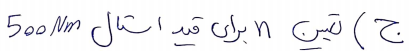 ج) تعیین n برای قید استال 500 Nm